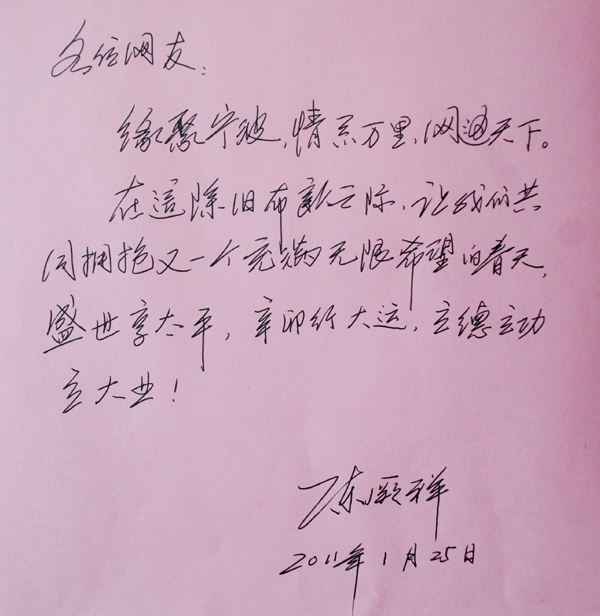 各位网友：
缘聚宁波，情系万里，网通天下。
在這除旧布新之际，让我们共
同拥抱又一个充满无限希望的春天，
盛世享太平，辛卯行大运，立德立功
立大业！
陈顕祥
2011年1月25日